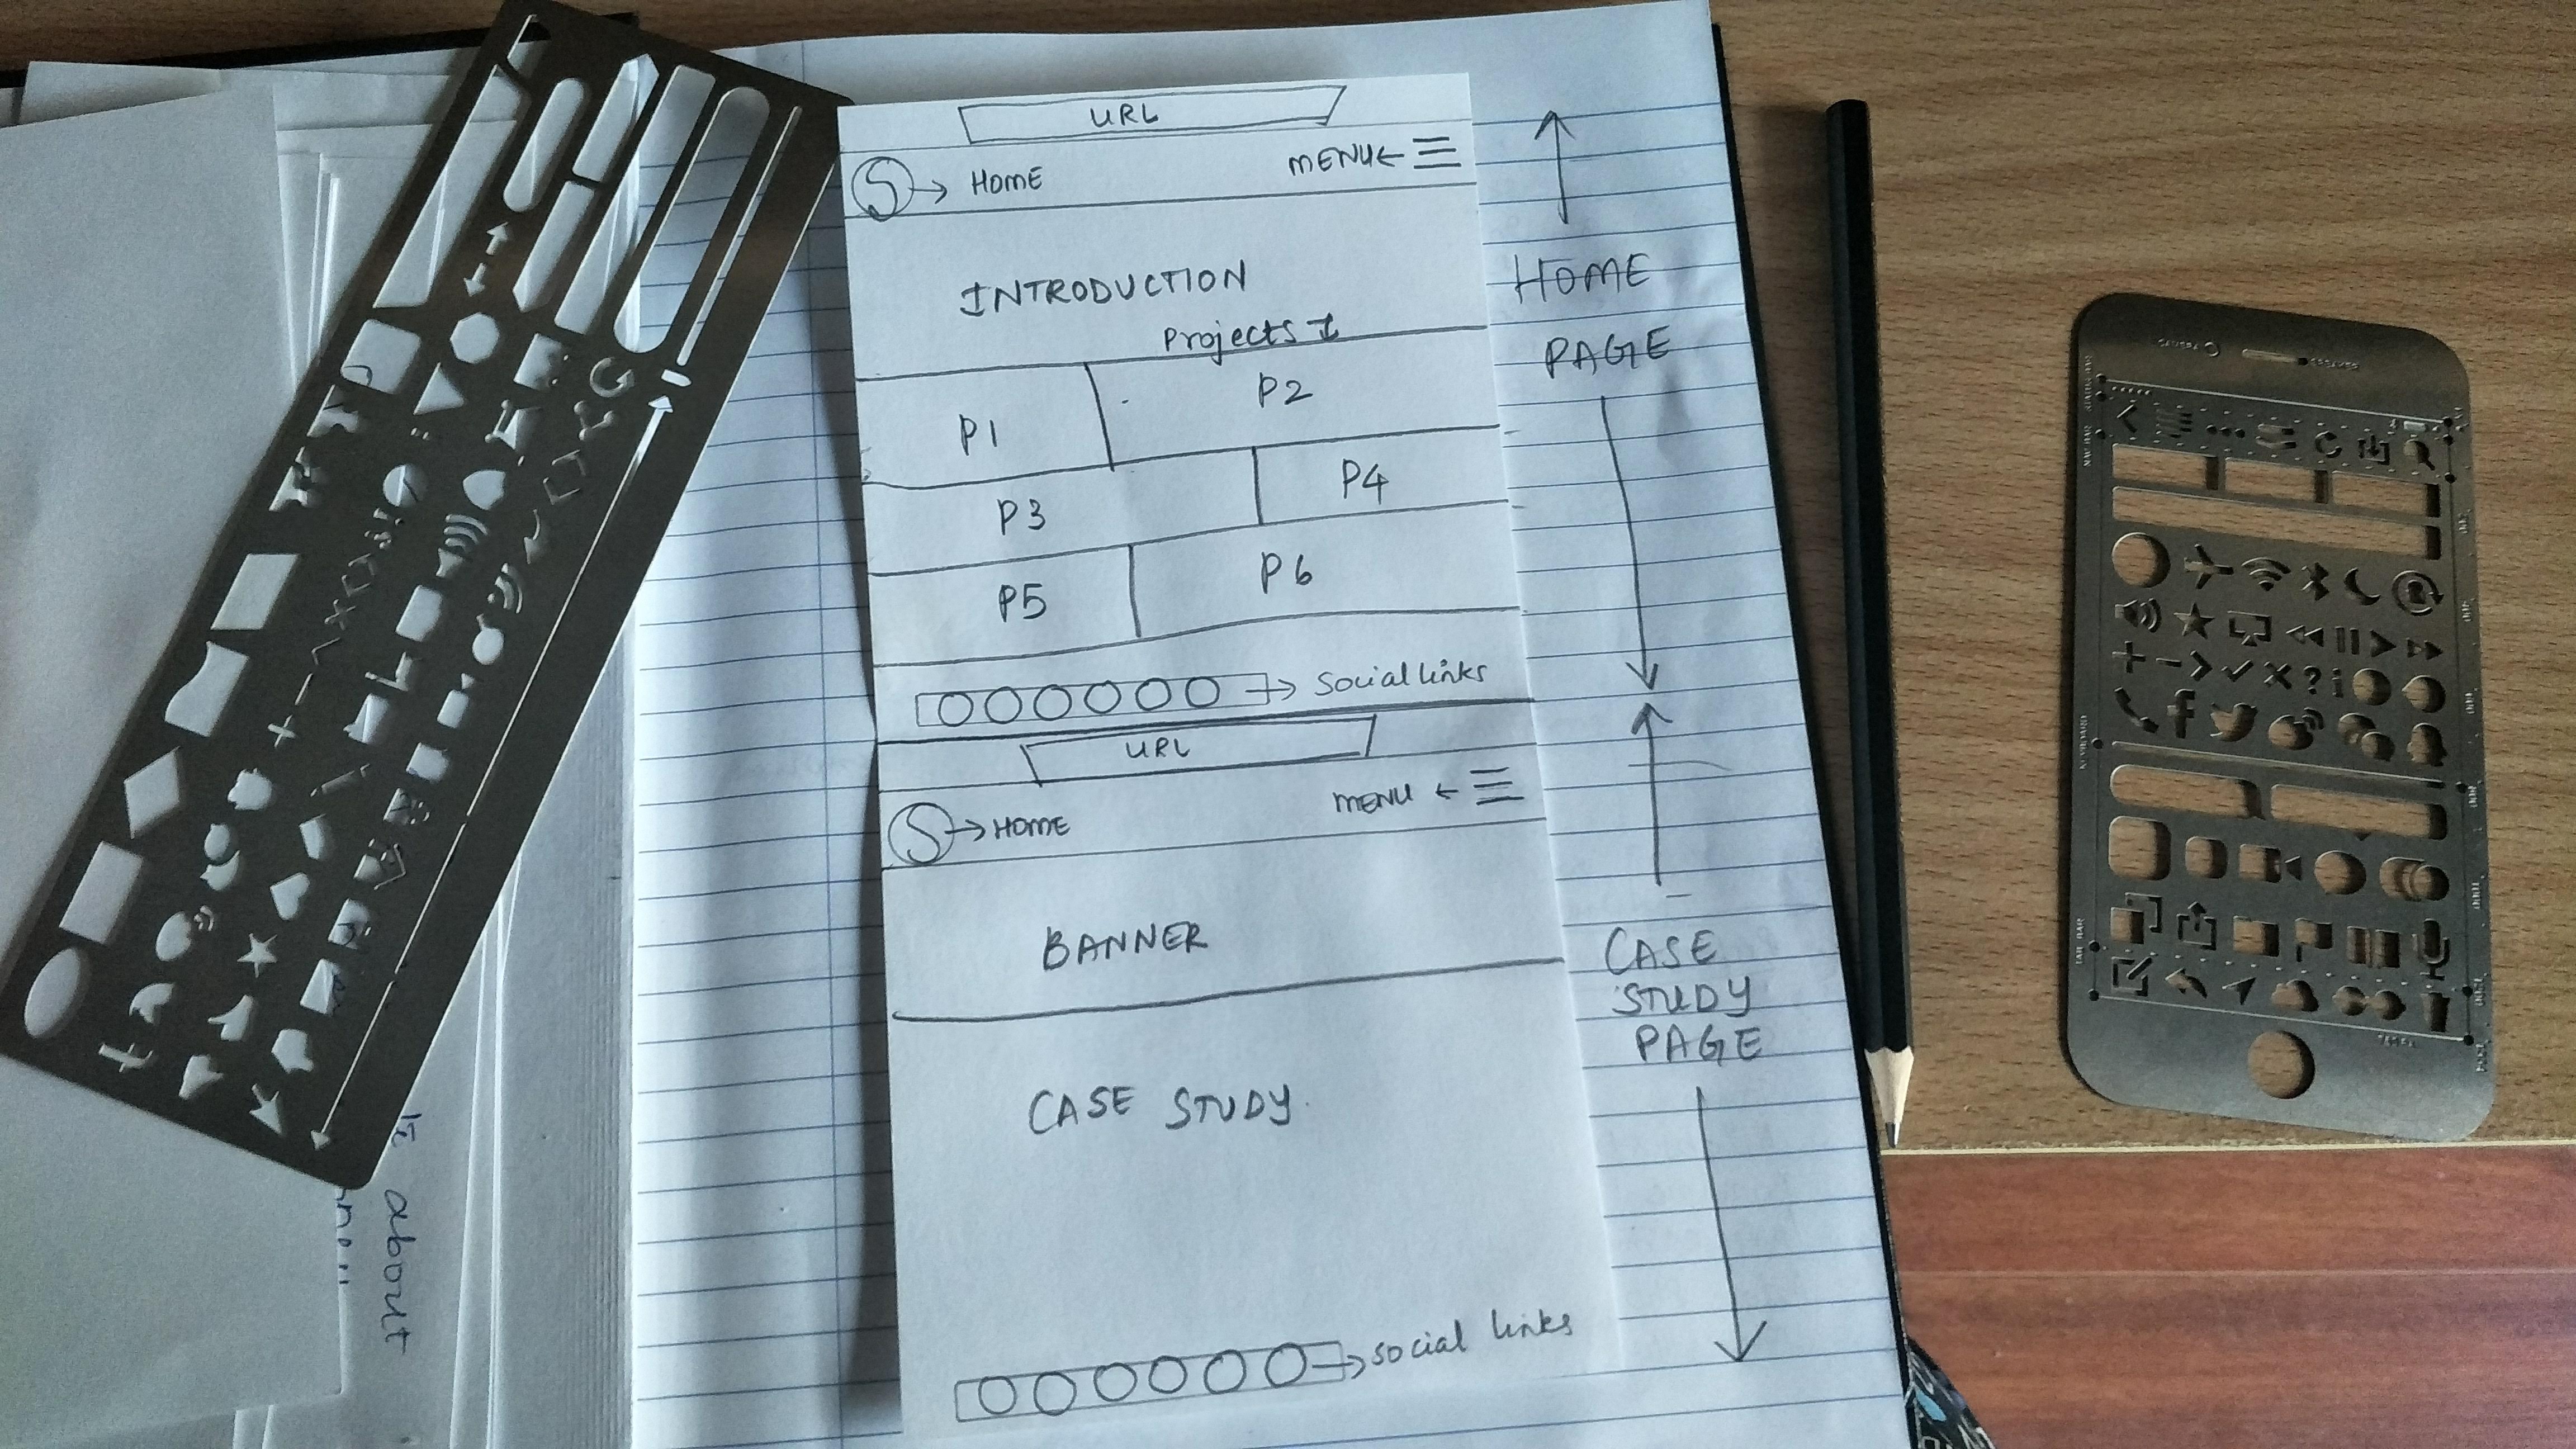 URL
S → HOME
MENU ←
INTRODUCTION
Projects ↓
P1
P2
P3
P4
P5
P6
→ Social links
URL
S → HOME
MENU ←
BANNER
CASE STUDY
→ social links
HOME
PAGE
CASE
STUDY
PAGE
about